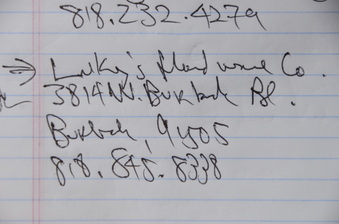 818.232.4279
→ Luky's Hardware Co.
3814 W. Burbank Bl.
Burbank, 91505
818.845.8338